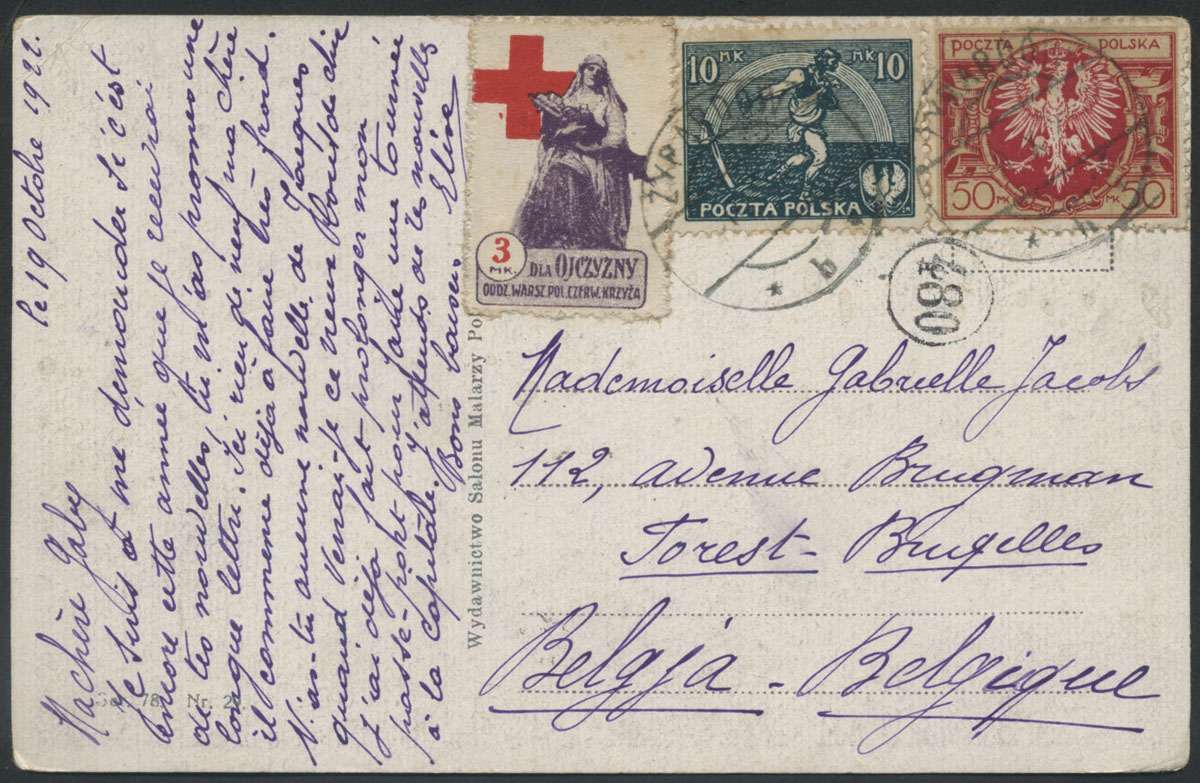 le 19 Octobre 1922.
Ma chère Gaby
Je suis à me demander si c'est
encore cette année que je recevrai
de tes nouvelles, tu m'as promes une
longue lettre. Ici rien de neuf, ma chère
il commence déjà à faire très froid.
N'as-tu aucune nouvelle de Jacques
quand verrai-je ce vieux
J'ai déjà fait prolonger mon
passe-port pour faire une tournée
à la capitale. J'attends de tes nouvelles
Bons baisers. Elise
Ser. 78. Nr. 2
Wydawnictwo Salonu Malarzy Po
3
MK.
DLA OJCZYZNY
ODDZ. WARSZ. POL. CZERW. KRZYŻA
10 MK MK 10
POCZTA POLSKA
POCZTA POLSKA
50 MK MK 50
ŻYRARDÓW
b
480
Mademoiselle Gabrielle Jacobs
112, avenue Brugman
Forest - Bruxelles
Belgja - Belgique